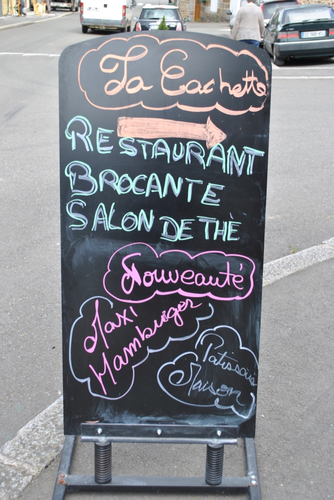 La Cachette
RESTAURANT
BROCANTE
SALON DE THÈ
Nouveauté
Maxi
Hamburger
Patisserie
Maison